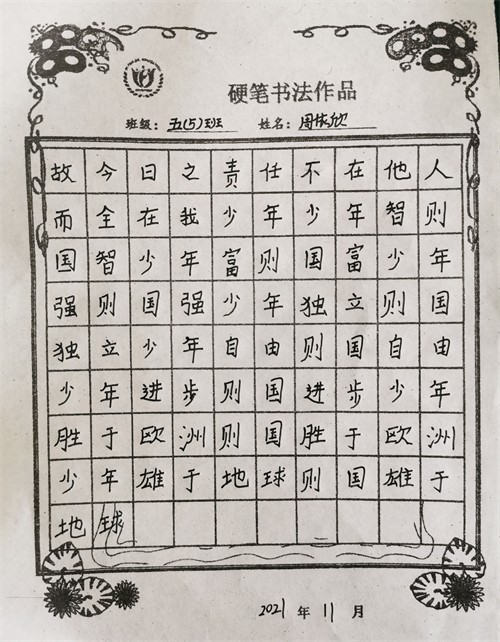 硬笔书法作品
班级：五(5)班 姓名：周依欣
故今日之责任不在他人
而全在我少年少年智则
国智少年富则国富少年
强则国强少年独立则国
独立少年自由则国自由
少年进步则国进步少年
胜于欧洲则国胜于欧洲
少年雄于地球则国雄于
地球
2021年11月